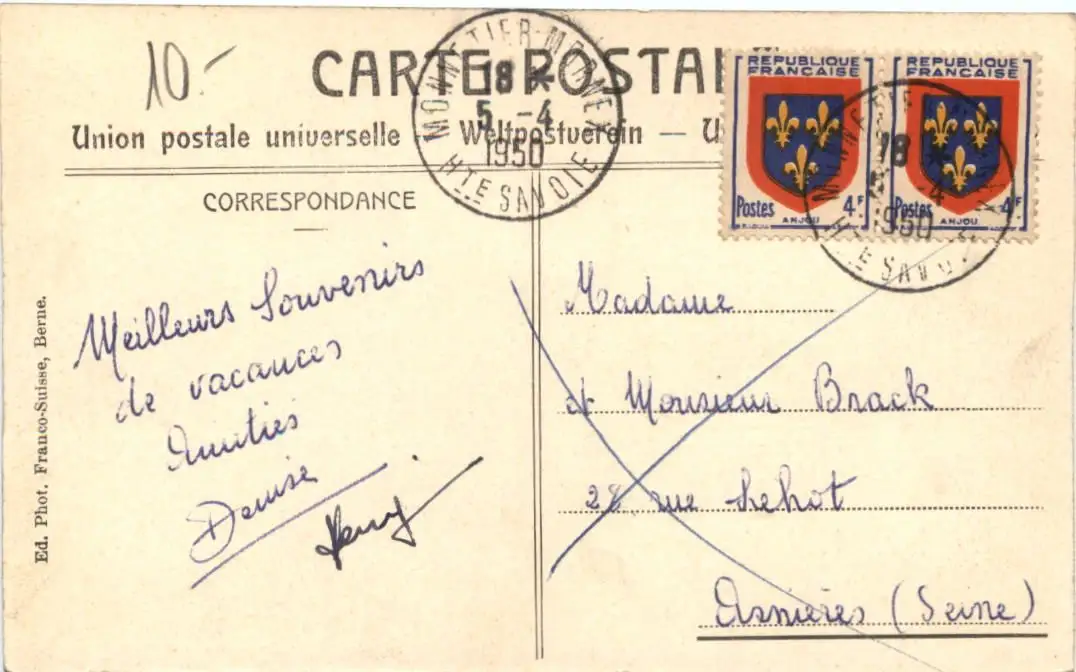 10.-
CARTE POSTAL
Union postale universelle — Weltpostverein — U
MONNETIER-MORNEX
18 H
5 -4
1950
HTE SAVOIE
REPUBLIQUE
FRANÇAISE
Postes 4F
ANJOU
REPUBLIQUE
FRANÇAISE
Postes 4F
ANJOU
18
-4
1950
HTE SAVOIE
CORRESPONDANCE
Meilleurs Souvenirs
de vacances
Amitiés
Denise
Madame
et Monsieur Brack
28 rue Lehot
Asnières (Seine)
Ed. Phot. Franco-Suisse, Berne.